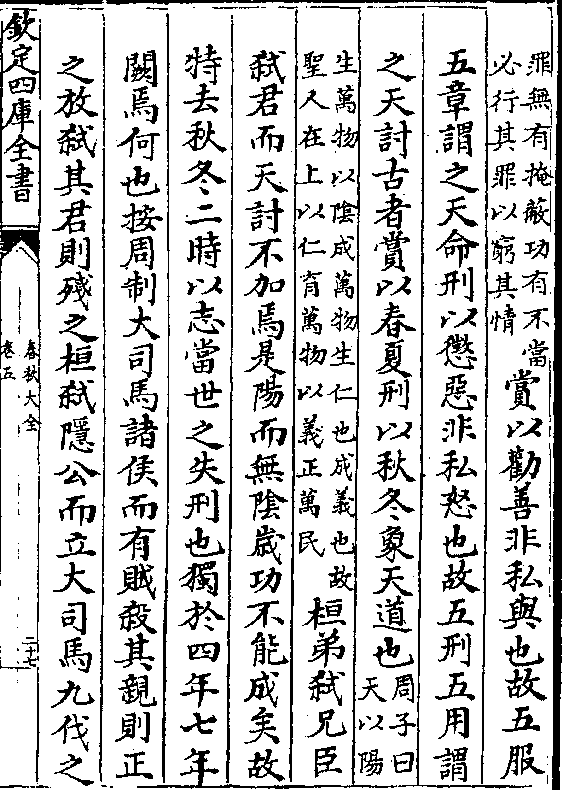 罪無有掩蔽功有不當
必行其罪以窮其情
賞以勸善非私與也故五服
五章謂之天命刑以懲惡非私怒也故五刑五用謂
之天討古者賞以春夏刑以秋冬象天道也
周子曰
天以陽
生萬物以陰成萬物生仁也成義也故
聖人在上以仁育萬物以義正萬民
桓弟弑兄臣
弑君而天討不加焉是陽而無陰歲功不能成矣故
特去秋冬二時以志當世之失刑也獨於四年七年
闕焉何也按周制大司馬諸侯而有賊殺其親則正
之放弑其君則殘之桓弑隱公而立大司馬九伐之
欽定四庫全書
春秋大全
卷五
二十七